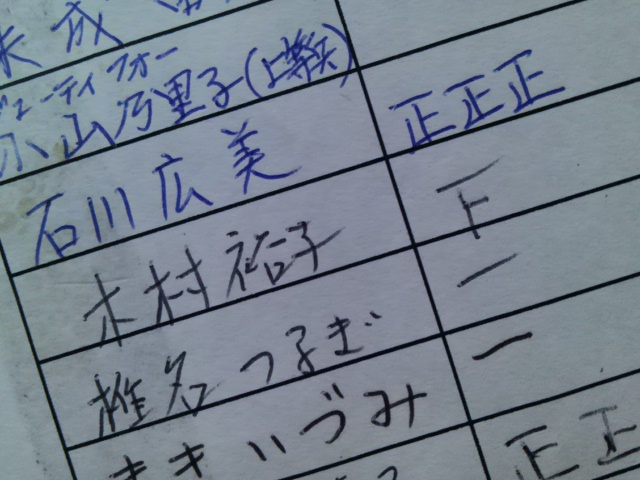 成
ューティフォー
小山乃里子(上等兵)
石川広美 正正正
木村祐子 下
椎名つるぎ 一
いづみ 一
正正